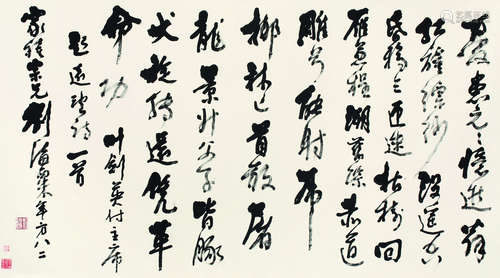 忧患元元憶逆翁
红旗縹緲没遥空
昏鸦三匝迷枯树回
雁兼程溯旧踪赤道
雕弓能射虎
椰林匕首敢屠
龍景升父子皆豚
犬旋转還凭革
命功 叶剑英付主席
远望诗一首
宗兄 刘海粟年方八二